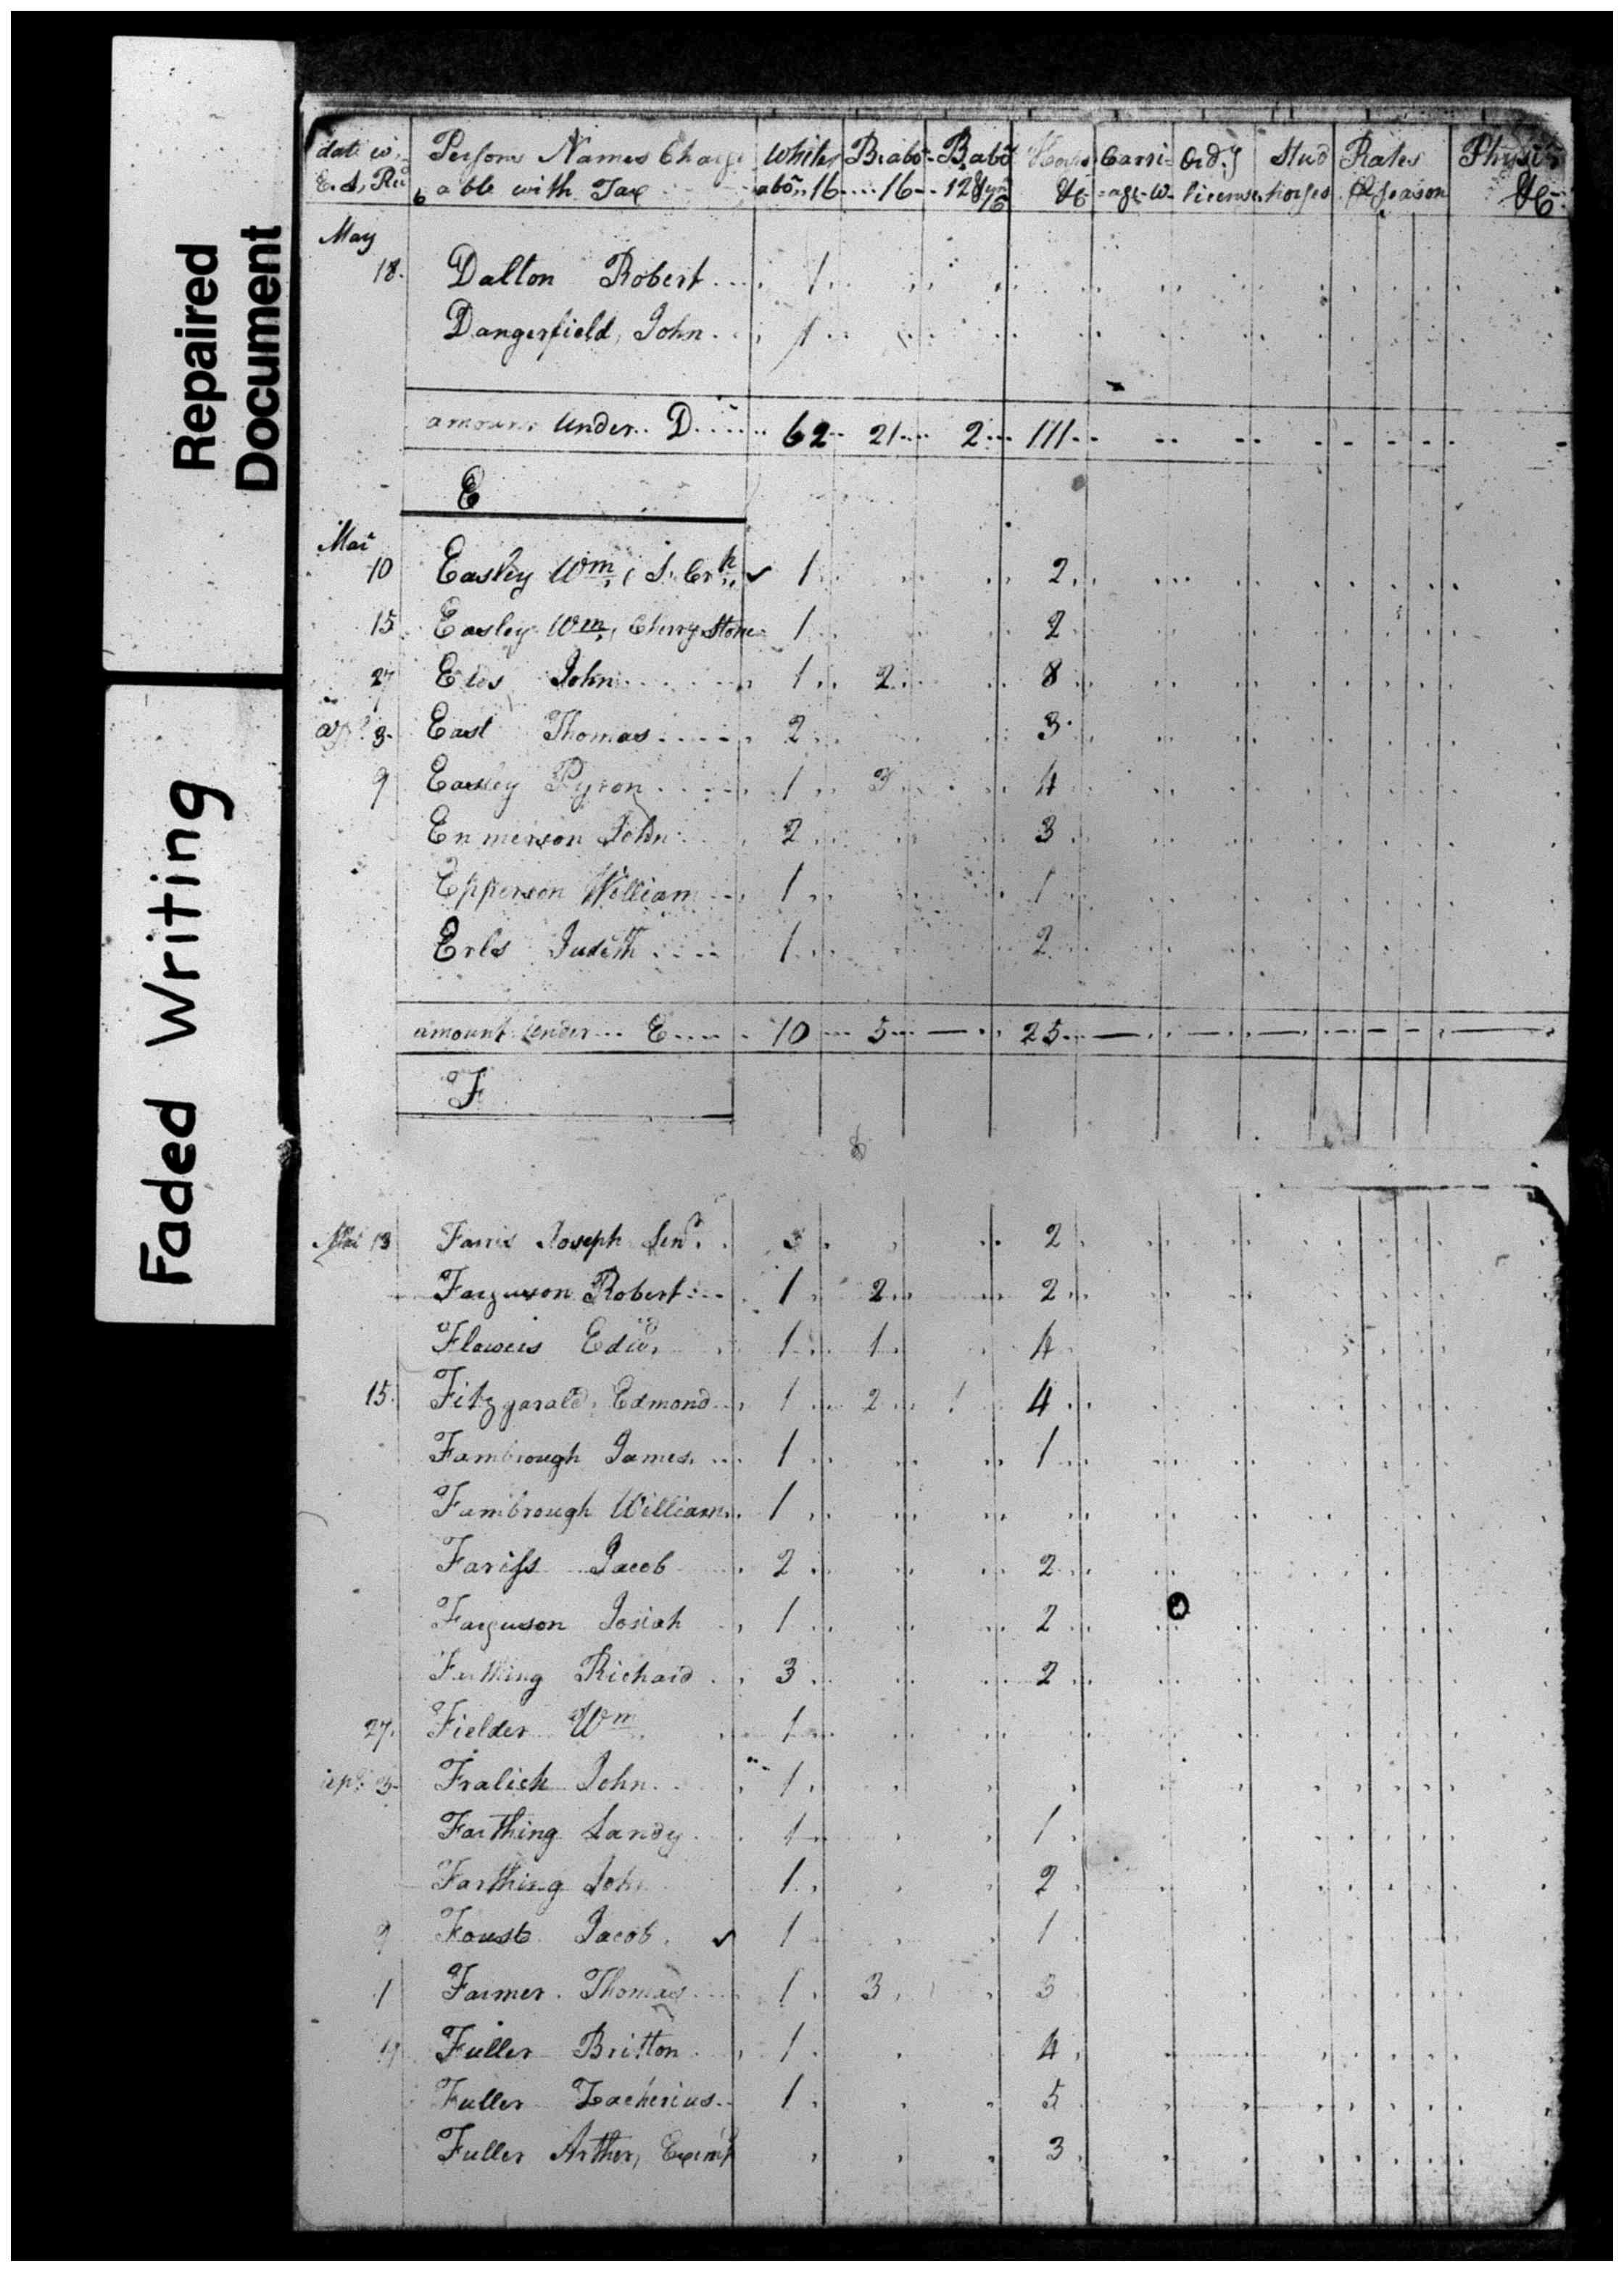 Repaired
Document
Faded Writing
date w. Persons Names Charge Whites B. abō. B. abō Horses Carri- Ord.y Stud Rates Physic.
E. S, Rec able with Tax abō. 16 16 12 & un 16 &c -age-w. license horses season &c
May
18. Dalton Robert 1
Dangerfield, John 1
amount under D 62 21 2 111
E
Mar
10 Easley Wm, 1 2
15 Easley Wm, Cherrystone 1 2
27 John 1 2 8
3 East Thomas 2 3
9 Easley Pyron 1 3 4
Enmerson John 2 3
Epperson William 1 1
Erls Judith 1 2
amount under E 10 5 — 25
F
Mar 13 Farris Joseph Senr. 3 2
Farguson Robert 1 2 2
Flowers Edwd. 1 1 4
15. Fitzgarald, Edmond 1 2 1 4
Fambrough James 1 1
Fambrough William 1
Fariss Jacob 2 2
Farguson Josiah 1 2
Farthing Richard 3 2
27. Fielder Wm 1
apl. 3 Fralick John 1
Farthing Landy 1 1
Farthing John 1 2
9 Foust Jacob 1 1
Farmer Thomas 1 3 3
Fuller Britton 1 4
Fuller Zacherius 1 5
Fuller Arther, Exemp 3